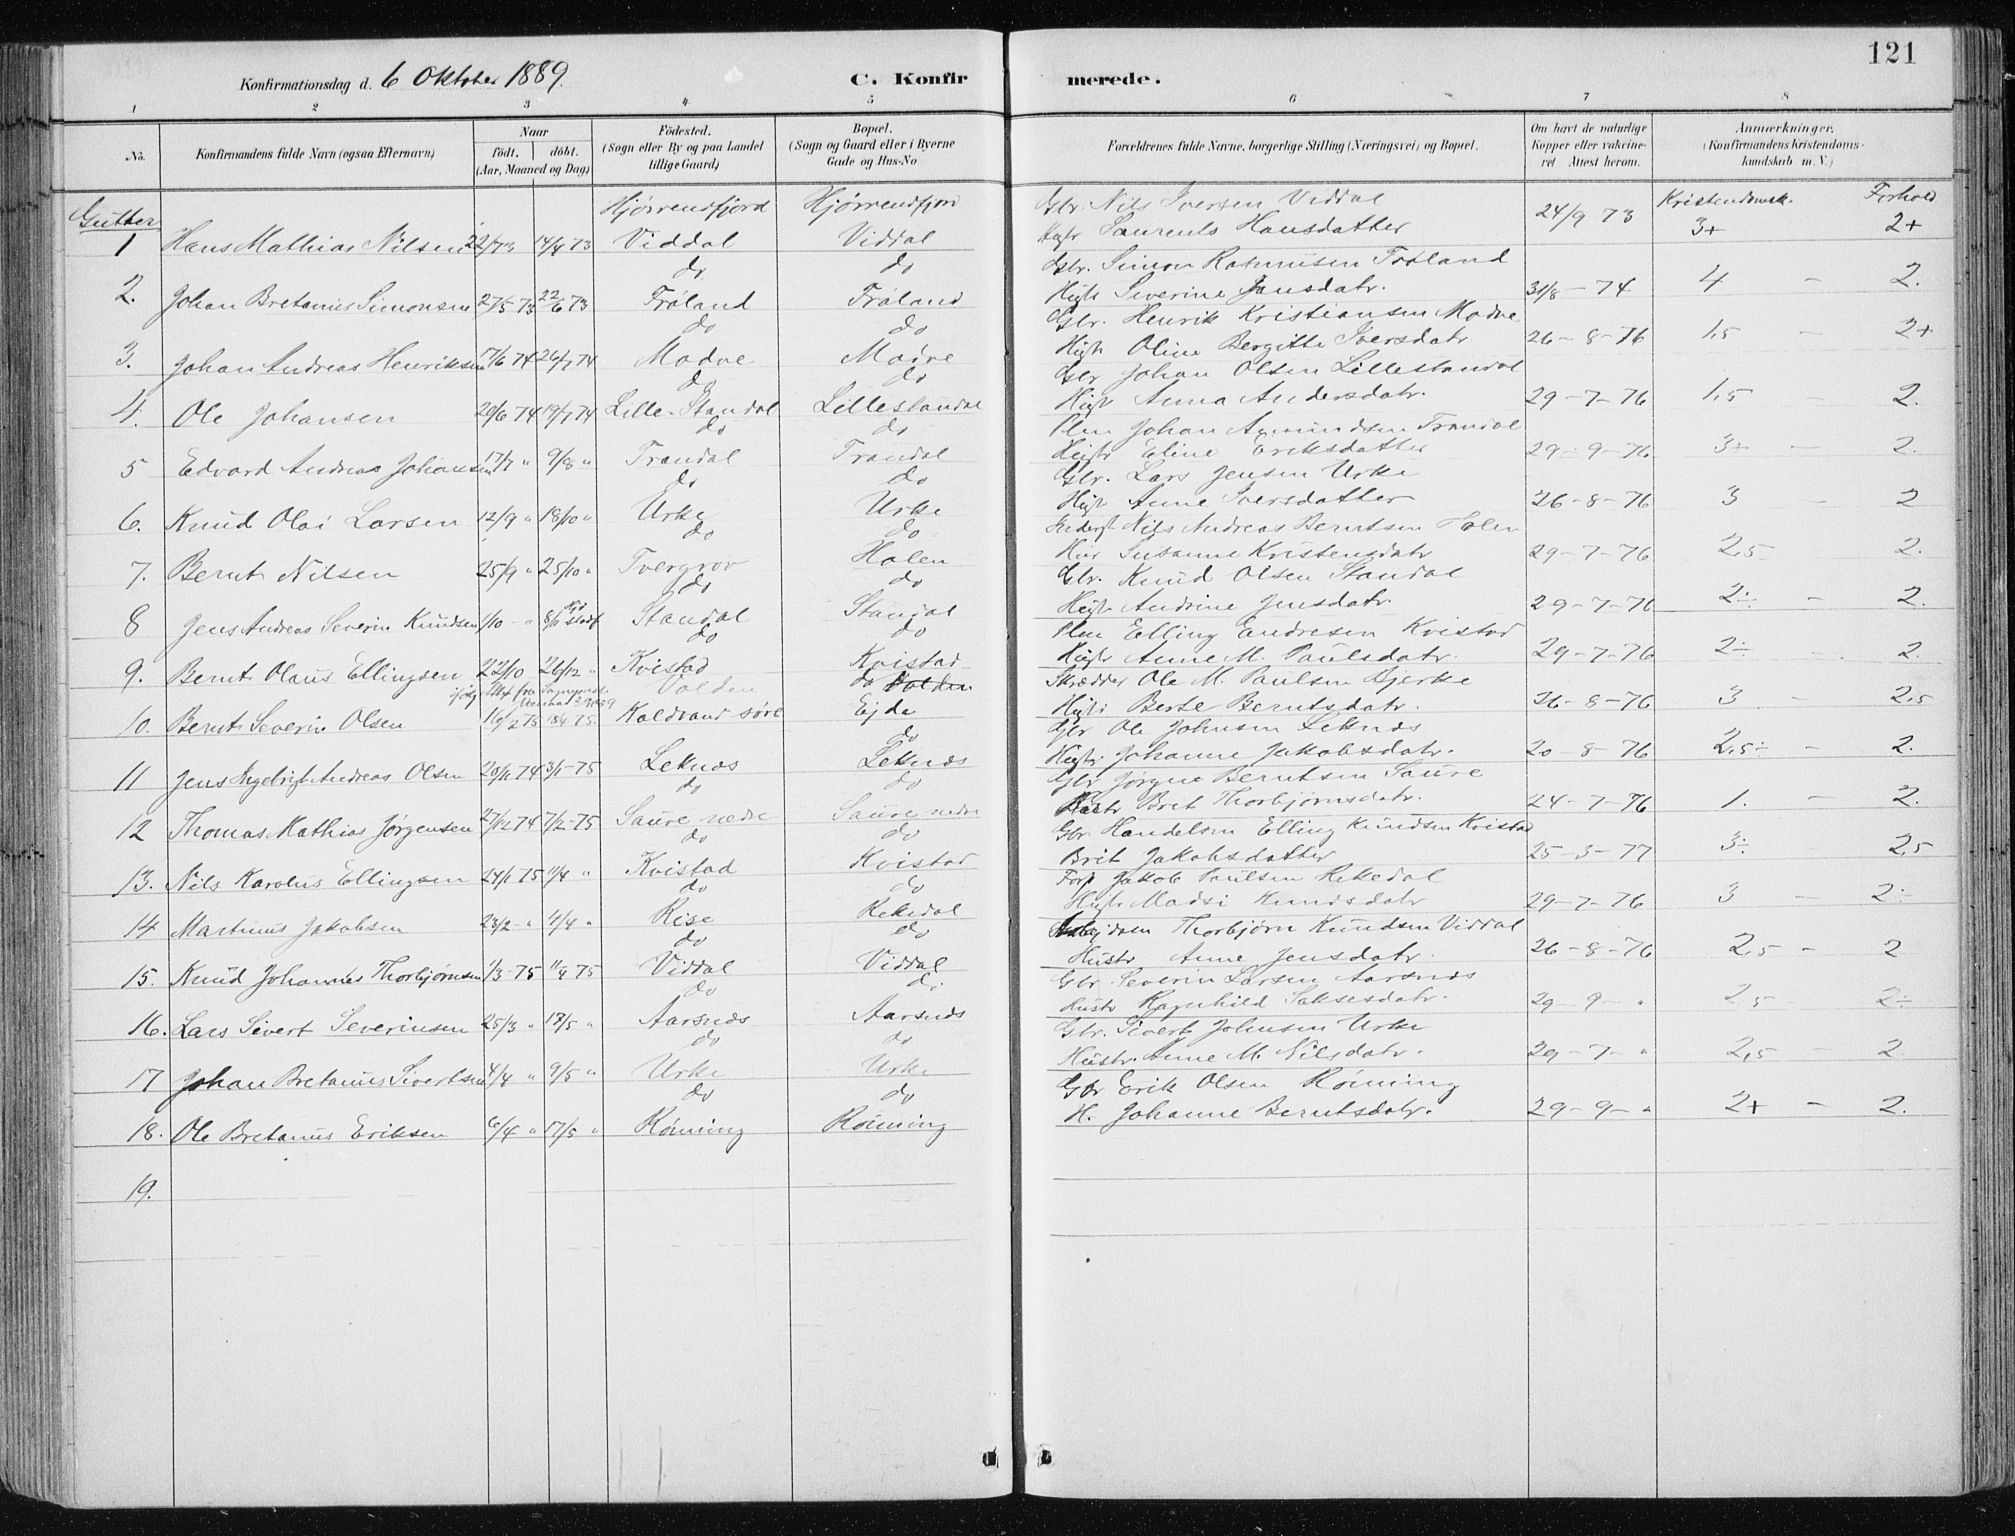 121
Konfirmationsdag d. 6 Oktober 1889. C. Konfirmerede.
1 2 3 4 5 6 7 8
No. Konfirmandens fulde Navn (ogsaa Efternavn) Naar födt. döbt. (Aar, Maaned og Dag) Födested. (Sogn eller By og paa Landet tillige Gaard) Bopæl. (Sogn og Gaard eller i Byerne Gade og Hus-No Forældrenes fulde Navne, borgerlige Stilling (Næringsvei) og Bopæl. Om havt de naturlige Kopper eller vaccineret Attest herom. Anmærkninger. (Konfirmandens Kristendomskundskab m. V.)
Gutter Hjörrendfjord Hjörrendfjord Gbr. Nils Iversen Viddal Kristendomsk. Forhold
1 Hans Mathias Nilsen 22/73 14/4 73 Viddal Viddal Laurents Hansdatter 24/9 73 3+ 2+
do do Gbr. Simon Rasmusen Fröland
2. Johan Bretanus Simonsen 27/5 73 22/6 73 Fröland Fröland Severine Jensdatr. 31/8 - 74 4 - 2.
do do Gbr. Henrik Kristiansen Modve
3. Johan Andreas Henriksen 17/6 74 26/7 74 Modve Modve Oline Bergitte Iversdatr 26-8-76 1,5 - 2+
do do Gbr Johan Olsen Lillestandal
4. Ole Johansen 20/6 74 19/7 74 Lille-Standal Lillestandal Anna Andersdatr. 29-7-76 1,5 - 2.
do do Johan Amundsen Trandal
5 Edvard Andreas Johansen 17/7 " 9/8 " Trandal Trandal Eline Eriksdatter 29-9-76 3+ - 2.
do do Gbr. Lars Jensen Urke
6. Knud Olai Larsen 12/9 " 18/10 " Urke Urke Anne Iversdatter 26-8-76 3 - 2
do do Nils Andreas Berntsen Holen
7. Bernt Nilsen 25/9 " 25/10 " Tvergrov Holen Susanne Kristensdatr 29-7-76 2,5 2.
do do Gbr. Knud Olsen Standal
8 Jens Andreas Severin Knudsen 1/10 - " 8/11 Standal Standal Andrine Jensdatr. 29-7-76 2÷ - 2.
do do Elling Endresen Kvistad
9. Bernt Olaus Ellingsen 22/10 26/12 " Kvistad Kvistad Anne M. Paulsdatr. 29-7-76 2÷ - 2.
Volden do Volden Skrædder Ole M. Paulsen Bjerke
10. Bernt Severin Olsen 16/2 75 18/4 75. Koldvand-söre Ejda Berte Berntsdatr. 26-8-76 3 - 2,5
do Gbr Ole Johnsen Leknæs
11 Jens Ingebrigt Andreas Olsen 20/11 74 3/1-75 Leknæs Leknæs Johanne Jakobsdatr. 20-8-76 2,5÷ - 2.
do do Gbr Jørgen Berntsen Saure
12 Thomas Mathias Jörgensen 27/12 74 7/2-75 Saure nedre Saure nedre Bret Thorbjörnsdatr. 24-7-76 1. - 2.
do do Gbr. Handelsm Elling Knudsen Kvistad
13. Nils Karolus Ellingsen 24/1 75 11/4 " Kvistad Kvistad Brit Jakobsdatter 25-3-77 3÷ 2,5
do do Jakob Paulsen Rekedal
14 Martinus Jakobsen 23/2 - " 4/4 " Rise Rekedal Madsi Knudsdatr 29-7-76 3 - 2÷
do do Thorbjörn Knudsen Viddal
15. Knud Johannes Thorbjörnsen 1/3-75 11/4 75 Viddal Viddal Hustr Anne Jensdatr. 26-8-76 2,5 - 2
do do Gbr Severin Larsen Aarsnæs
16. Lars Sivert Severinsen 25/3 " 17/5 " Aarsnæs Aarsnæs Hustr Ragnhild Saksesdatr. 29-9- " 2,5 2÷
do do Gbr. Sivert Johnsen Urke
17 Johan Bretanus Sivertsen 4/4 " 9/5 " Urke Urke Hustr. Anne M. Nilsdatr. 29-7- " 2,5 - 2
do do Gbr Erik Olsen Röming
18. Ole Bretanus Eriksen 6/4 " 17/5 " Röming Röming H. Johanne Berntsdatr. 29-9- " 2+ - 2.
19.